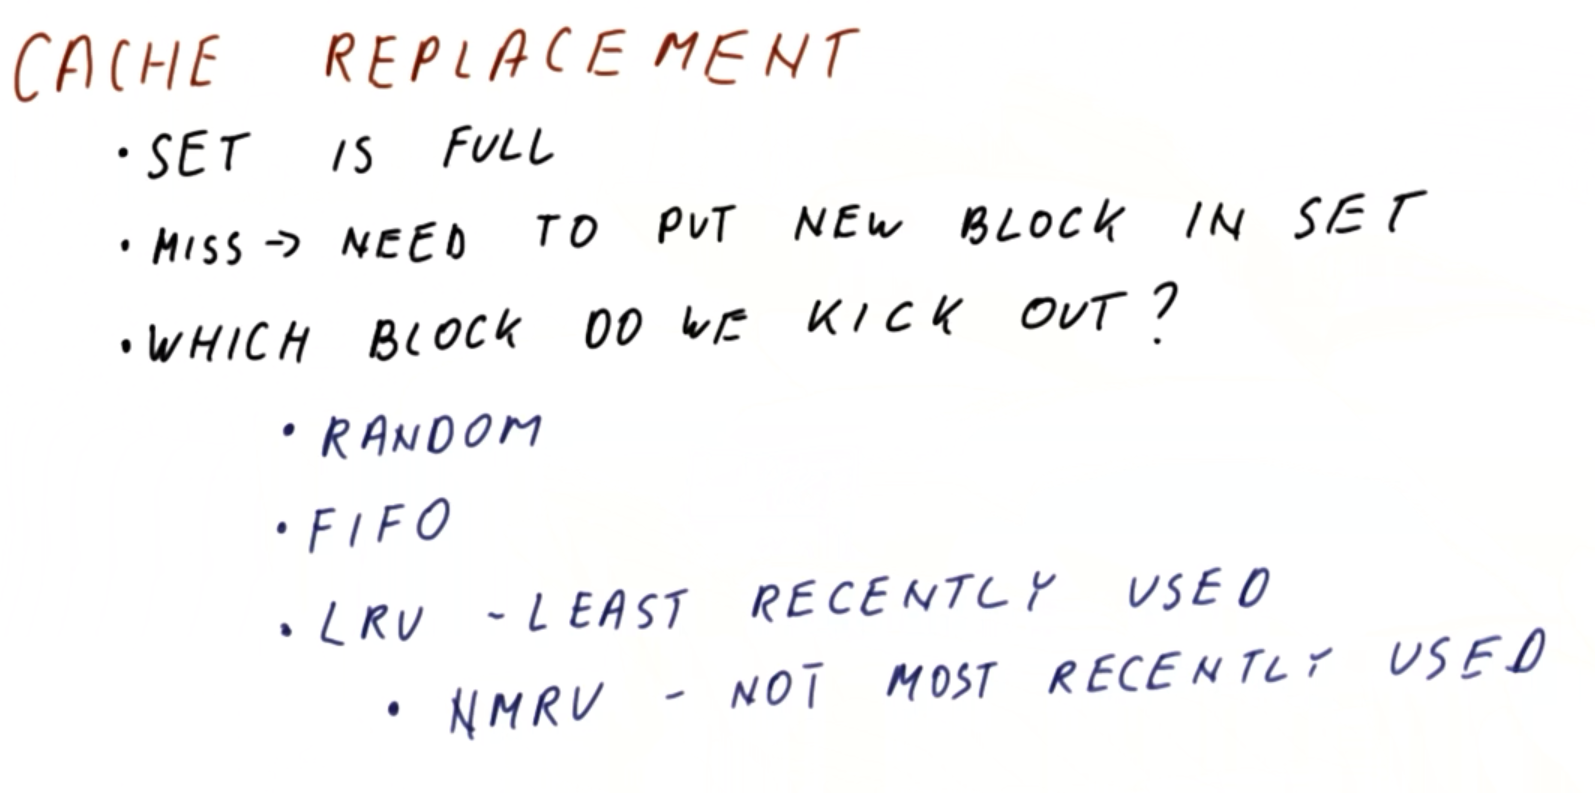 CACHE REPLACEMENT
• SET IS FULL
• MISS → NEED TO PUT NEW BLOCK IN SET
• WHICH BLOCK DO WE KICK OUT?
• RANDOM
• FIFO
• LRU - LEAST RECENTLY USED
• NMRU - NOT MOST RECENTLY USED